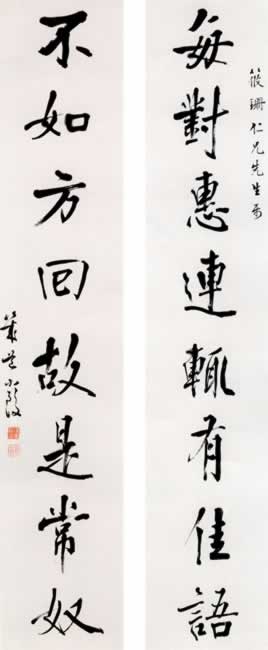 筱珊仁兄先生
每對惠連輒有佳語
不如方回故是常奴